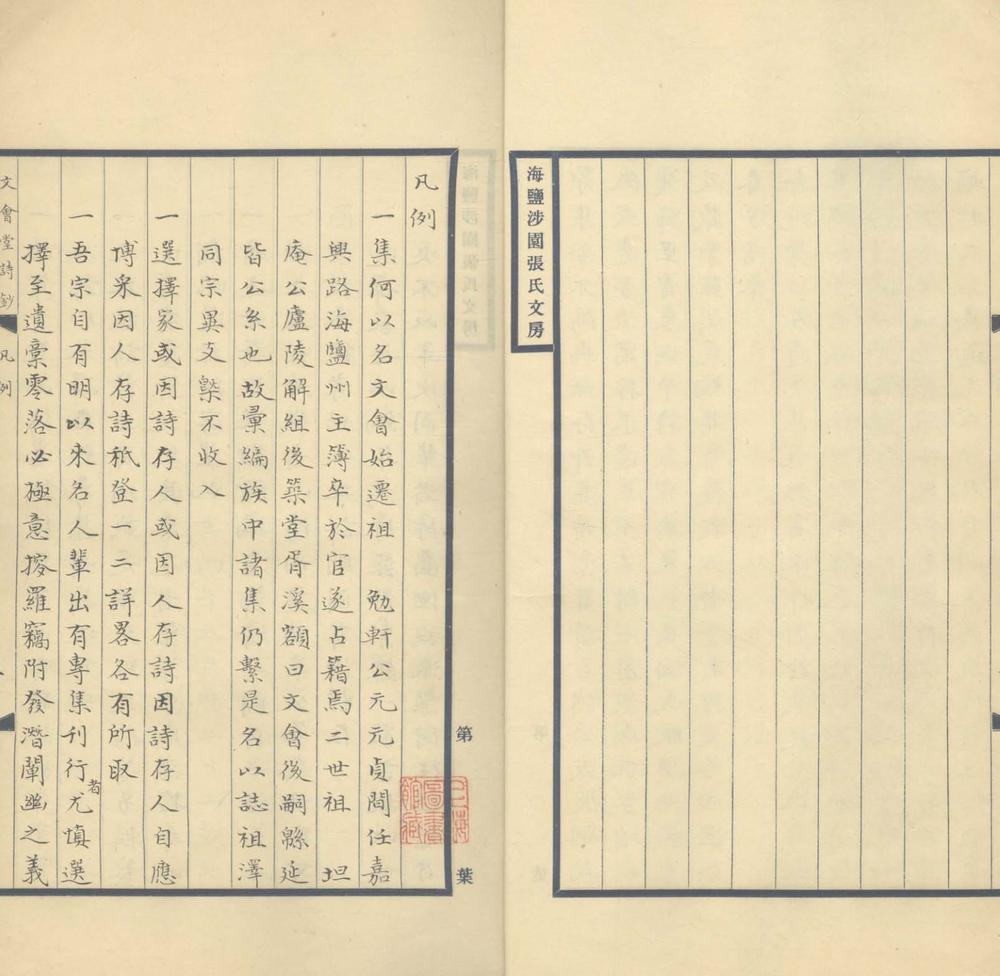 海鹽涉園張氏文房
第 葉
凡例
一集何以名文會始遷祖 勉軒公元元貞間任嘉
興路海鹽州主簿卒於官遂占籍焉二世祖 坦
庵公廬陵解組後築堂胥溪額曰文會後嗣緜延
皆公系也故彙編族中諸集仍繫是名以誌祖澤
同宗異支槩不收入
一選擇家或因詩存人或因人存詩因詩存人自應
博采因人存詩祇登一二詳畧各有所取
一吾宗自有明以來名人輩出有專集刊行者尤慎選
擇至遺稾零落必極意搜羅竊附發潛闡幽之義
文會堂詩鈔 凡例